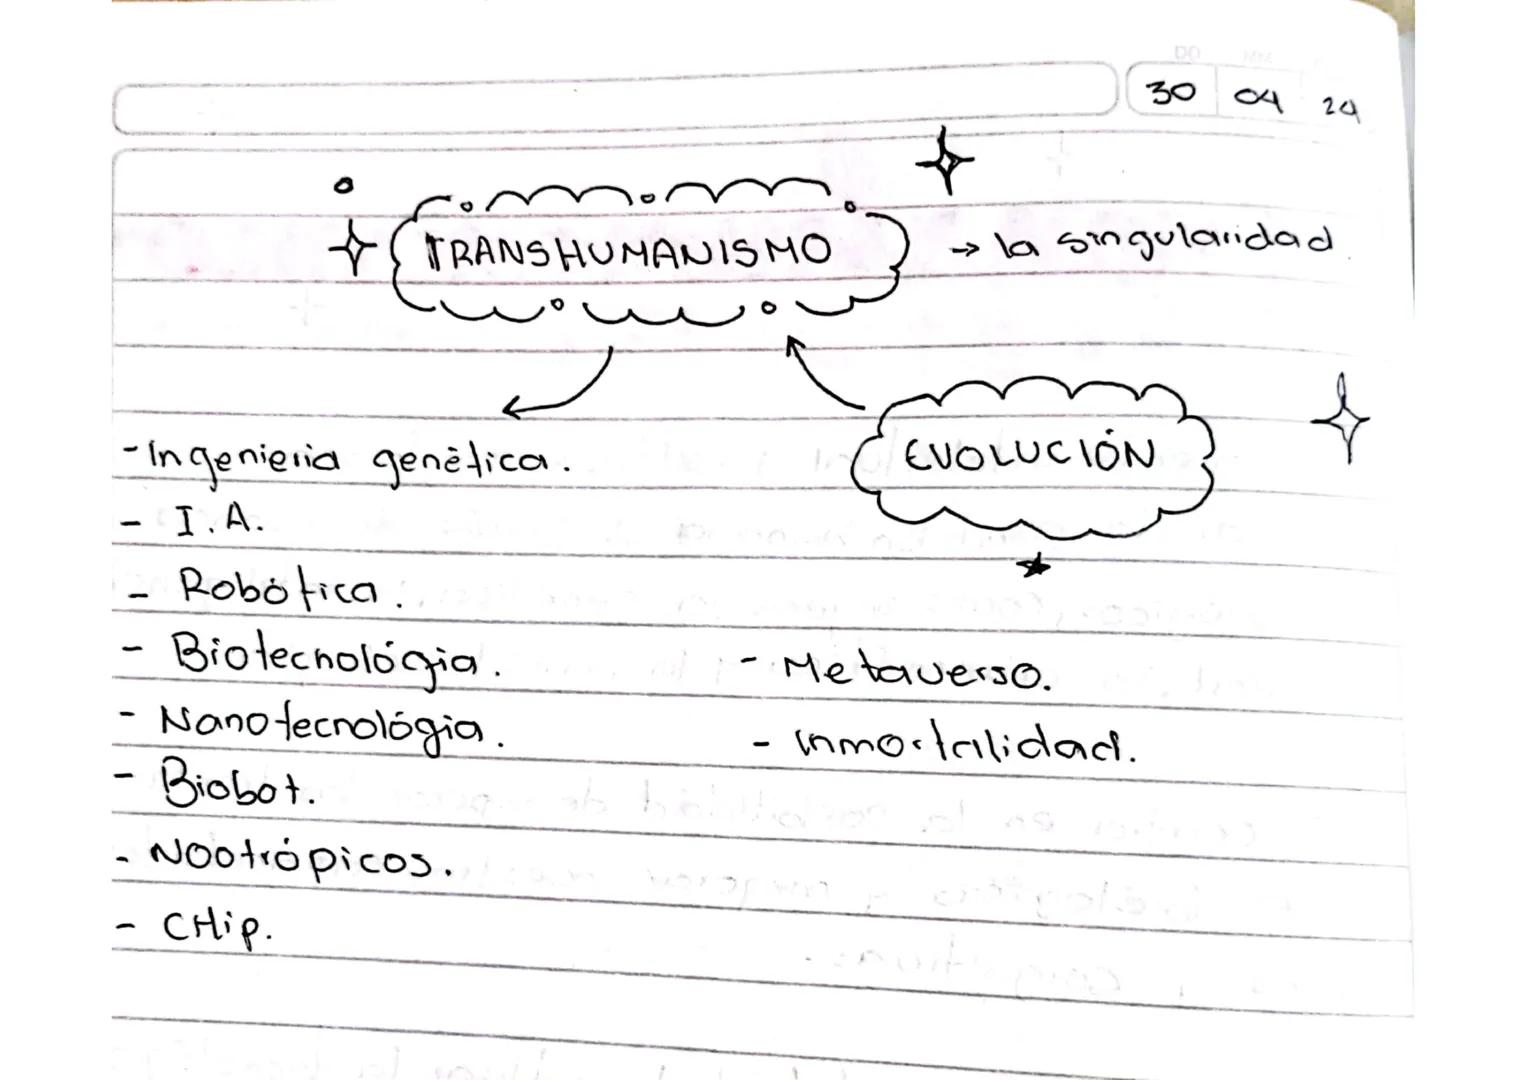 30 04 24
TRANSHUMANISMO → la singularidad
EVOLUCIÓN
-Ingenieria genética.
- I.A.
- Robótica.
- Biotecnológia.
- Nanotecnológia.
- Biobot.
- Nootrópicos.
- CHip.
- Metaverso.
- inmortalidad.